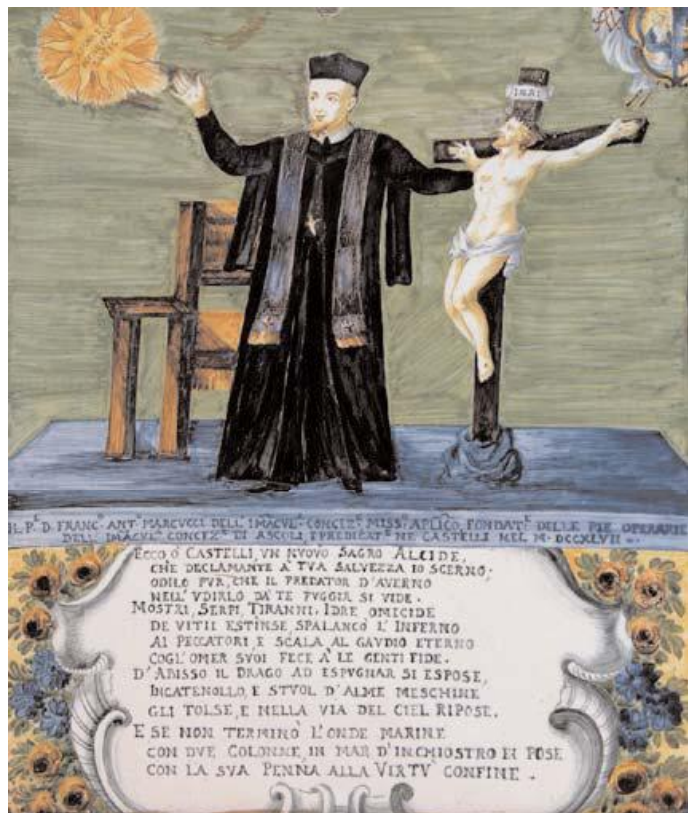 INRI
IL P.E D. FRANC.O ANT.O MARCVCCI DELL'IMACVL.A CONCEZ.E MISS.O APLICO, FONDAT.E DELLE PIE OPERARIE
DELL'IMACVL.A CONCEZ.E DI ASCOLI, E PREDICAT.E NE CASTELLI NEL M·DCCXLVII
ECCO, Ò CASTELLI, VN NVOVO SAGRO ALCIDE,
CHE DECLAMANTE À TVA SALVEZZA IO SCERNO.
ODILO PVR, CHE IL PREDATOR D'AVERNO
NELL'VDIRLO DA TE FVGGIR SI VIDE.
MOSTRI, SERPI, TIRANNI, IDRE OMICIDE
DE VITII ESTINSE, SPALANCÒ L'INFERNO
AI PECCATORI, E SCALA AL GAVDIO ETERNO
COGL'OMER SVOI FECE À LE GENTI FIDE.
D'ABISSO IL DRAGO AD ESPVGNAR SI ESPOSE,
INCATENOLLO, E STVOL D'ALME MESCHINE
GLI TOLSE, E NELLA VIA DEL CIEL RIPOSE.
E SE NON TERMINÒ L'ONDE MARINE
CON DVE COLONNE, IN MAR D'INCHIOSTRO EI POSE
CON LA SVA PENNA ALLA VIRTV' CONFINE.